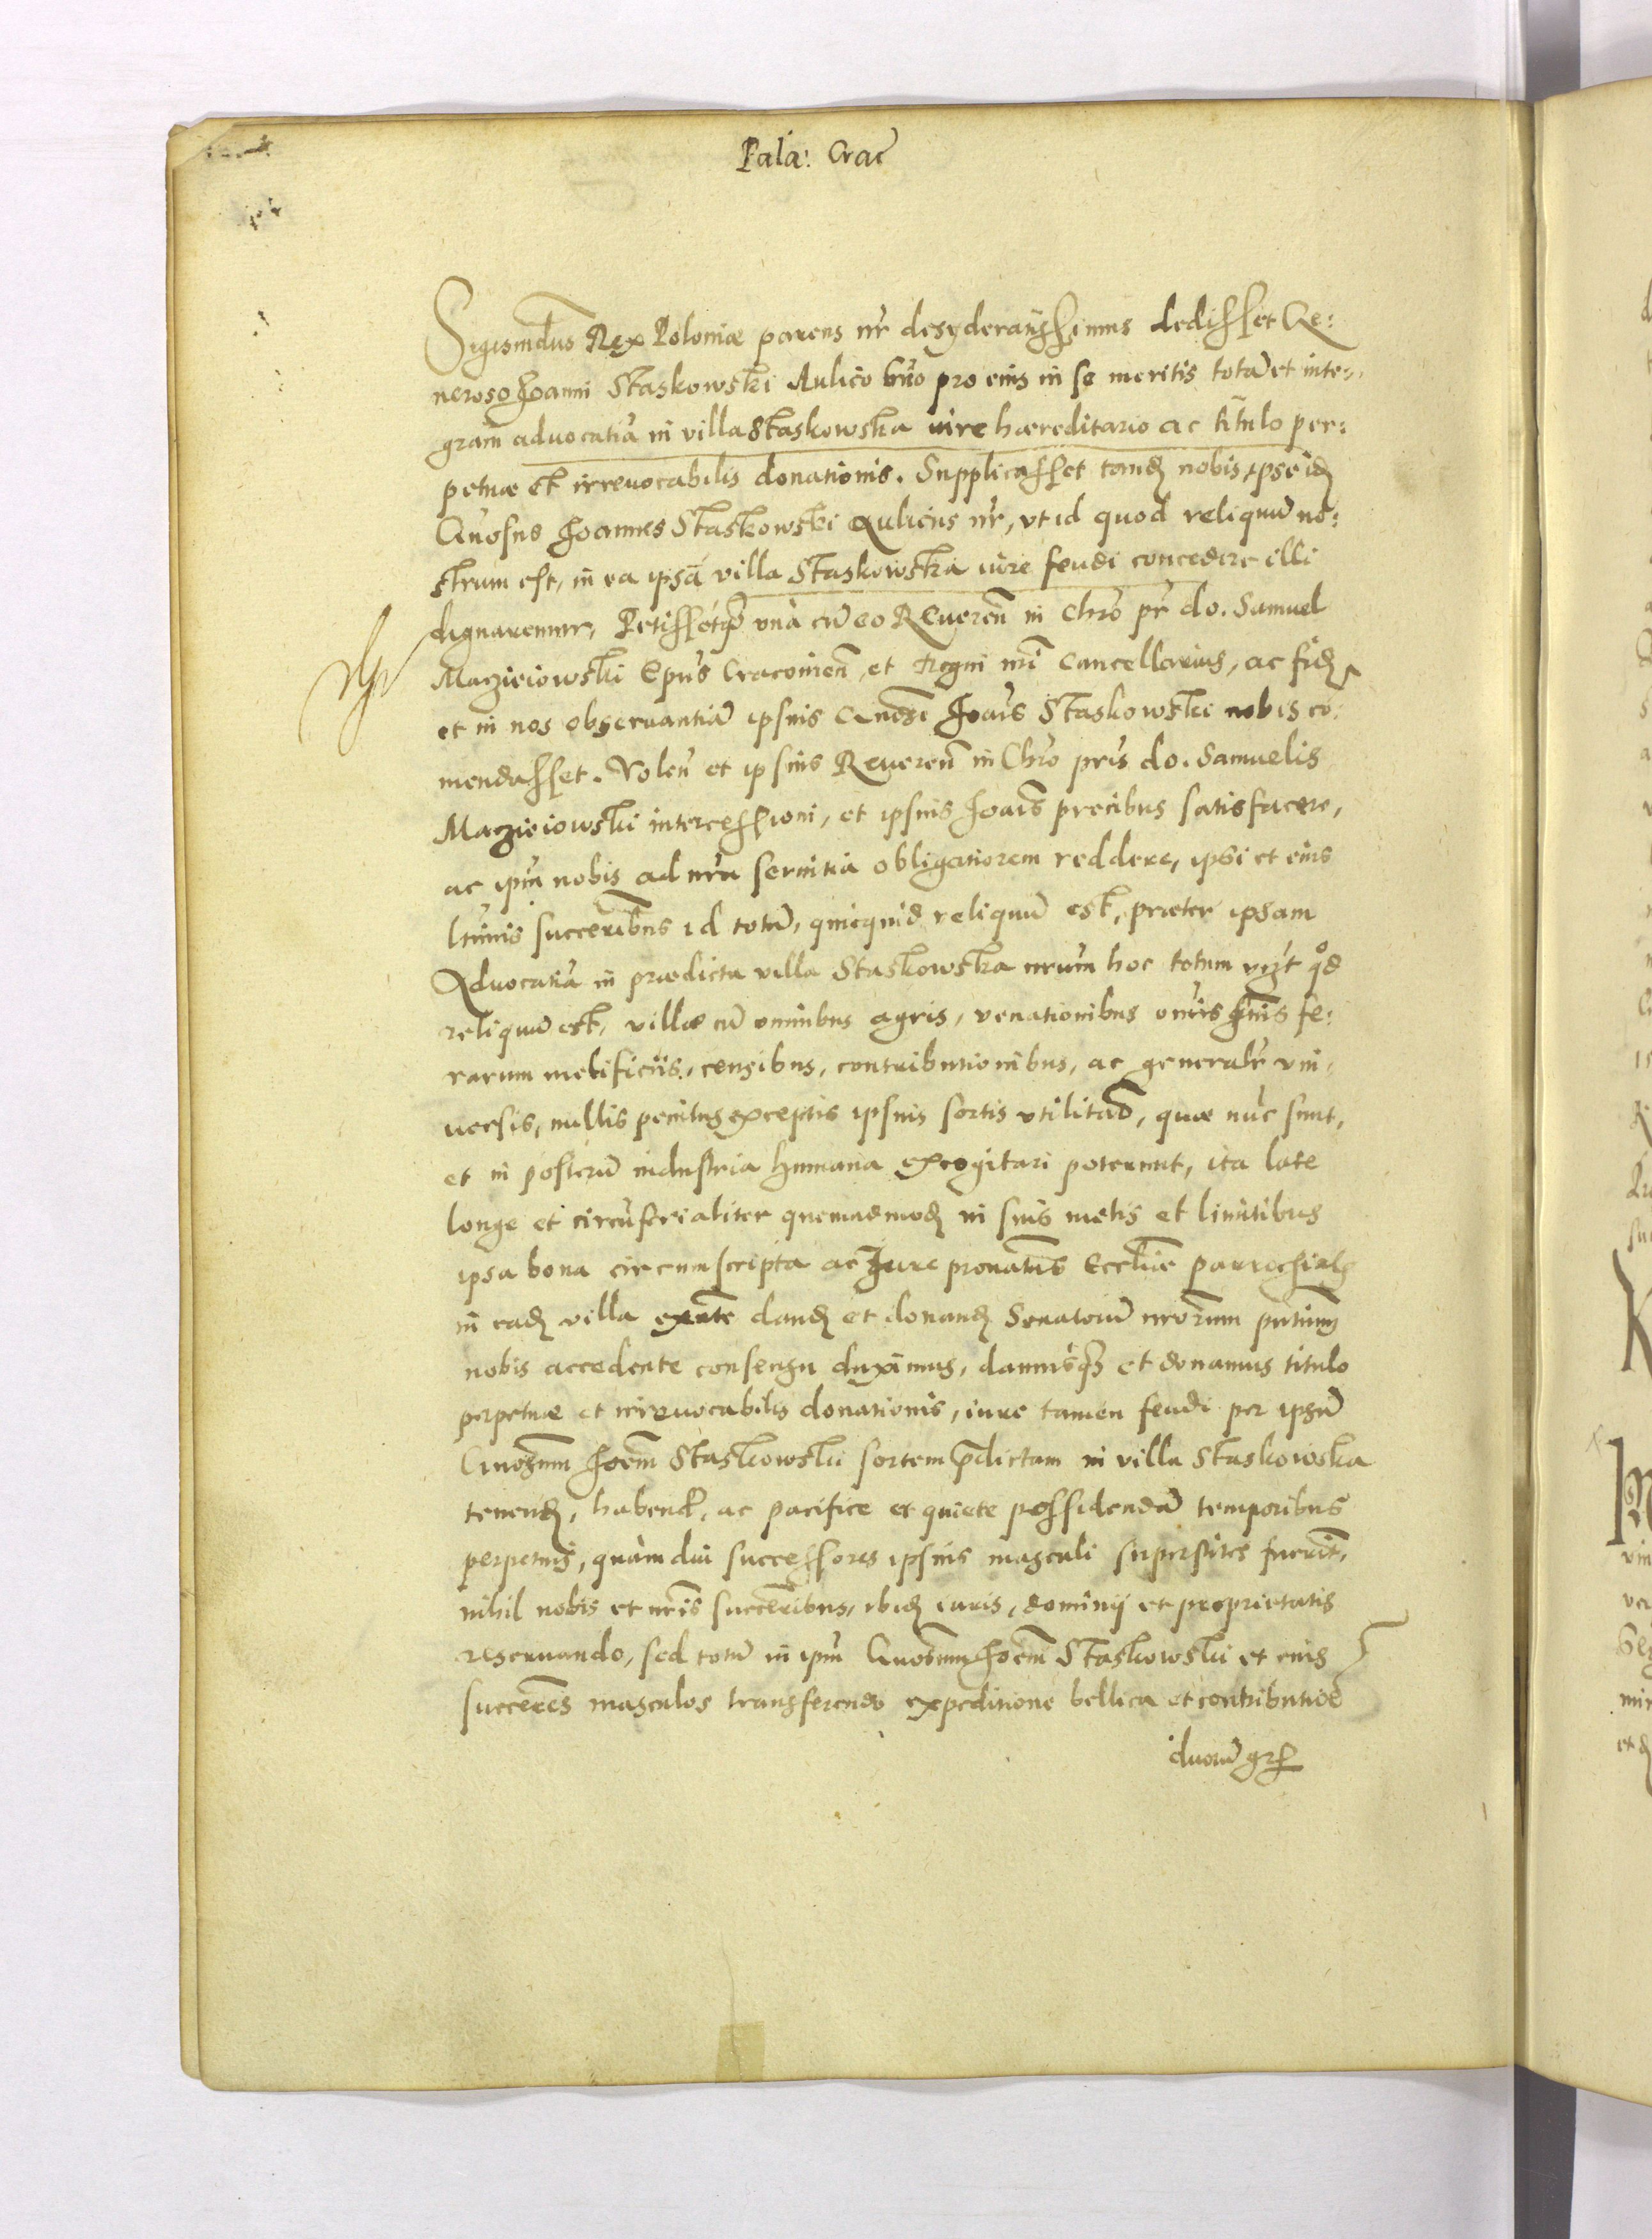 Pala: Crac̃
Sigismdus Rex Poloniæ parens nr̃ desyderatissimus dedisset Ge:
neroso Joanni Staskowski Aulico suo pro eius in se meritis totã et inte:
gram aduocatiã in villa Staskowska iure hæreditario ac titulo per:
petuæ et irreuocabilis donationis. Supplicasset tandẽ nobis ipse idẽ
Gnosus Joannes Staskowski Aulicus nr̃, vt id quod reliquũ no:
strum est, in ea ipsã villa Staskowska iure feudi concedere illi
dignaremur, Petissetq̃ vnà cũ eo Reuereñ in Chr̃o pr̃ do. Samuel
Maczieiowski Ep̃us Cracouieñ, et Regni nr̃i Cancellarius, ac fidẽ
et in nos obseruantiã ipsius Gnosi Joañis Staskowski nobis co:
mendasset. Voleñ et ipsius Reuereñ in Chr̃o pr̃is do. Samuelis
Maczieiowski intercessioni, et ipsius Joañis precibus satisfacere,
ac ipm̃ nobis ad nr̃a seruitia obligatiorem reddere, ipsi et eius
ltimis succeribus id totũ, quicquid reliquũ est, præter ipsam
Aduocatiã in prædicta villa Staskowska nr̃um hoc totum vizt qd
reliquũ est, villæ cũ omnibus agris, venationibus om̃is gñis fe:
rarum mellificiis, censibus, contributionibus, ac generalr̃ vni:
uersis, nullis penitus exceptis ipsius sortis vtilitatib, quæ nũc sunt,
et in posterũ industria humana excogitari poterunt, ita late
longe et circũferialiter quemadmodũ in suis metis et limitibus
ipsa bona circumscripta ac Jure pronatus Eccliæ parrochialis
in eadẽ villa exñte dandẽ et donandẽ Senatorũ nr̃orum pñtium
nobis accedente consensu duximus, damusq̃ et donamus titulo
perpetuæ et irreuocabilis donationis, iure tamen feudi per ipsũ
Gnosum Joem̃ Staskowski sortem p̃dictam in villa Staskowska
tenendẽ, habend, ac pacifice et quiete possidendã temporibus
perpetuis, quàm diu successores ipsius masculi superstites fuerit,
nihil nobis et nr̃is succeribus, ibidẽ iuris, dominij et proprietatis
reseruando, sed totũ in ipm̃ Gnosum Joem̃ Staskowski et eius
succeres masculos transferendo expeditione bellica et contributioe
duorũ gr̃